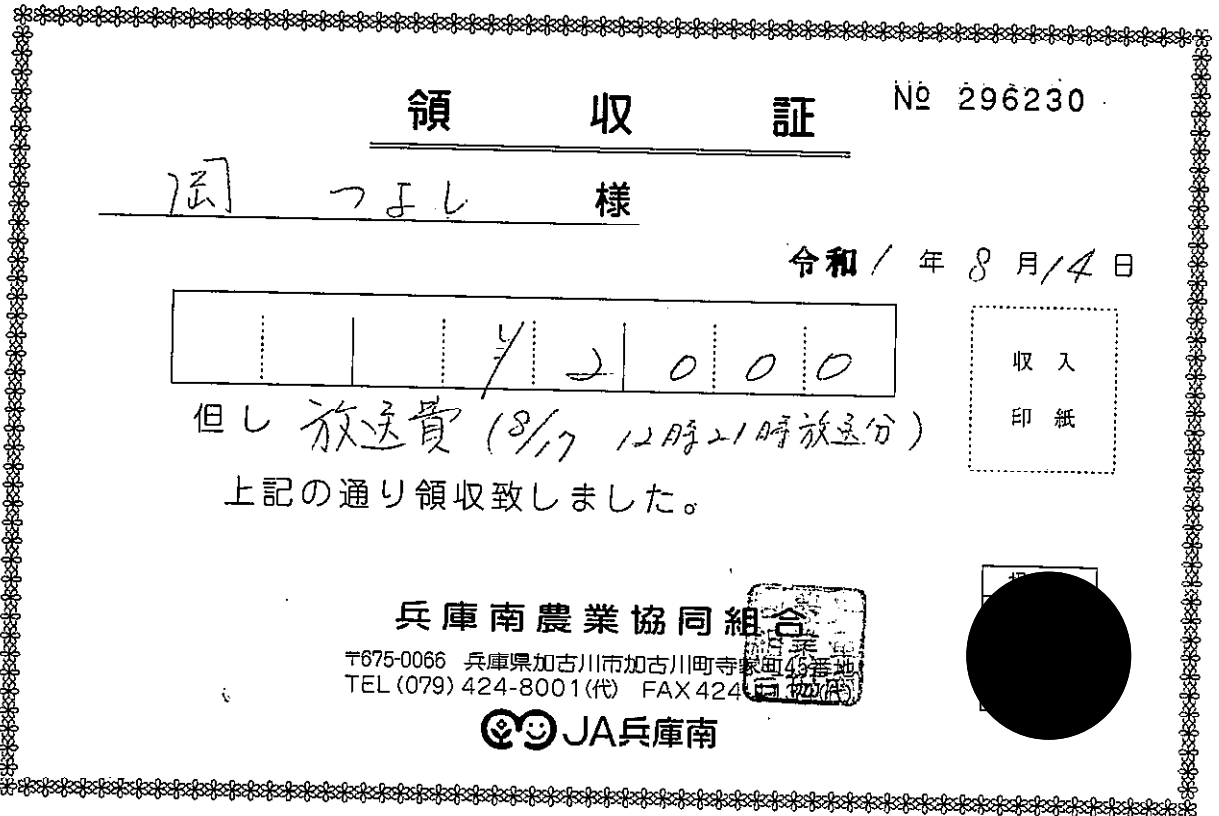 領 収 証
№ 296230
岡 つよし 様
令和 1 年 8 月 14 日
¥2000
但し 放送費 (8/17 12時21時放送分)
上記の通り領収致しました。
収 入
印 紙
兵庫南農業協同組合
〒675-0066 兵庫県加古川市加古川町寺家町45番地
TEL (079) 424-8001(代) FAX 424-
JA兵庫南